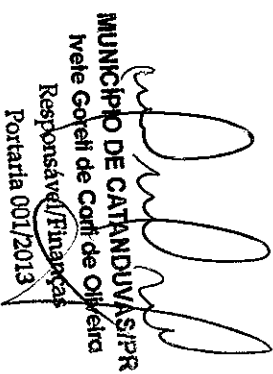 MUNICÍPIO DE CATANDUVAS/PR
Ivete Goreti de Conti de Oliveira
Responsável/Finanças
Portaria 001/2013